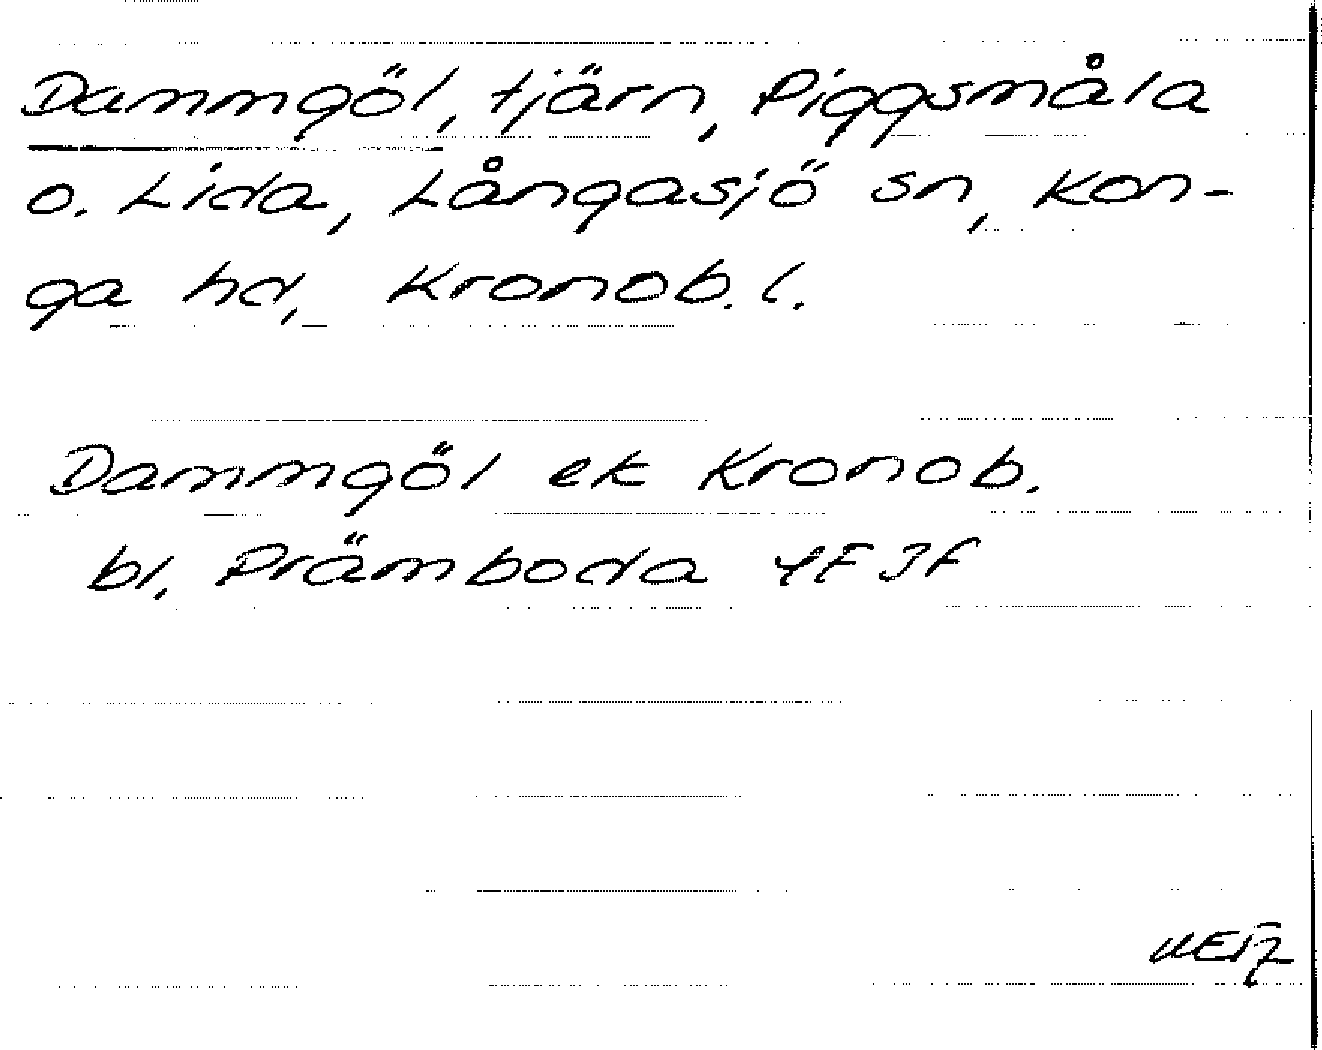 Dammgöl, tjärn, Piggsmåla
o. Lida, Långasjö sn, Kon-
ga hd, Kronob. l.
Dammgöl ek Kronob.
bl. Prämboda 4F3f